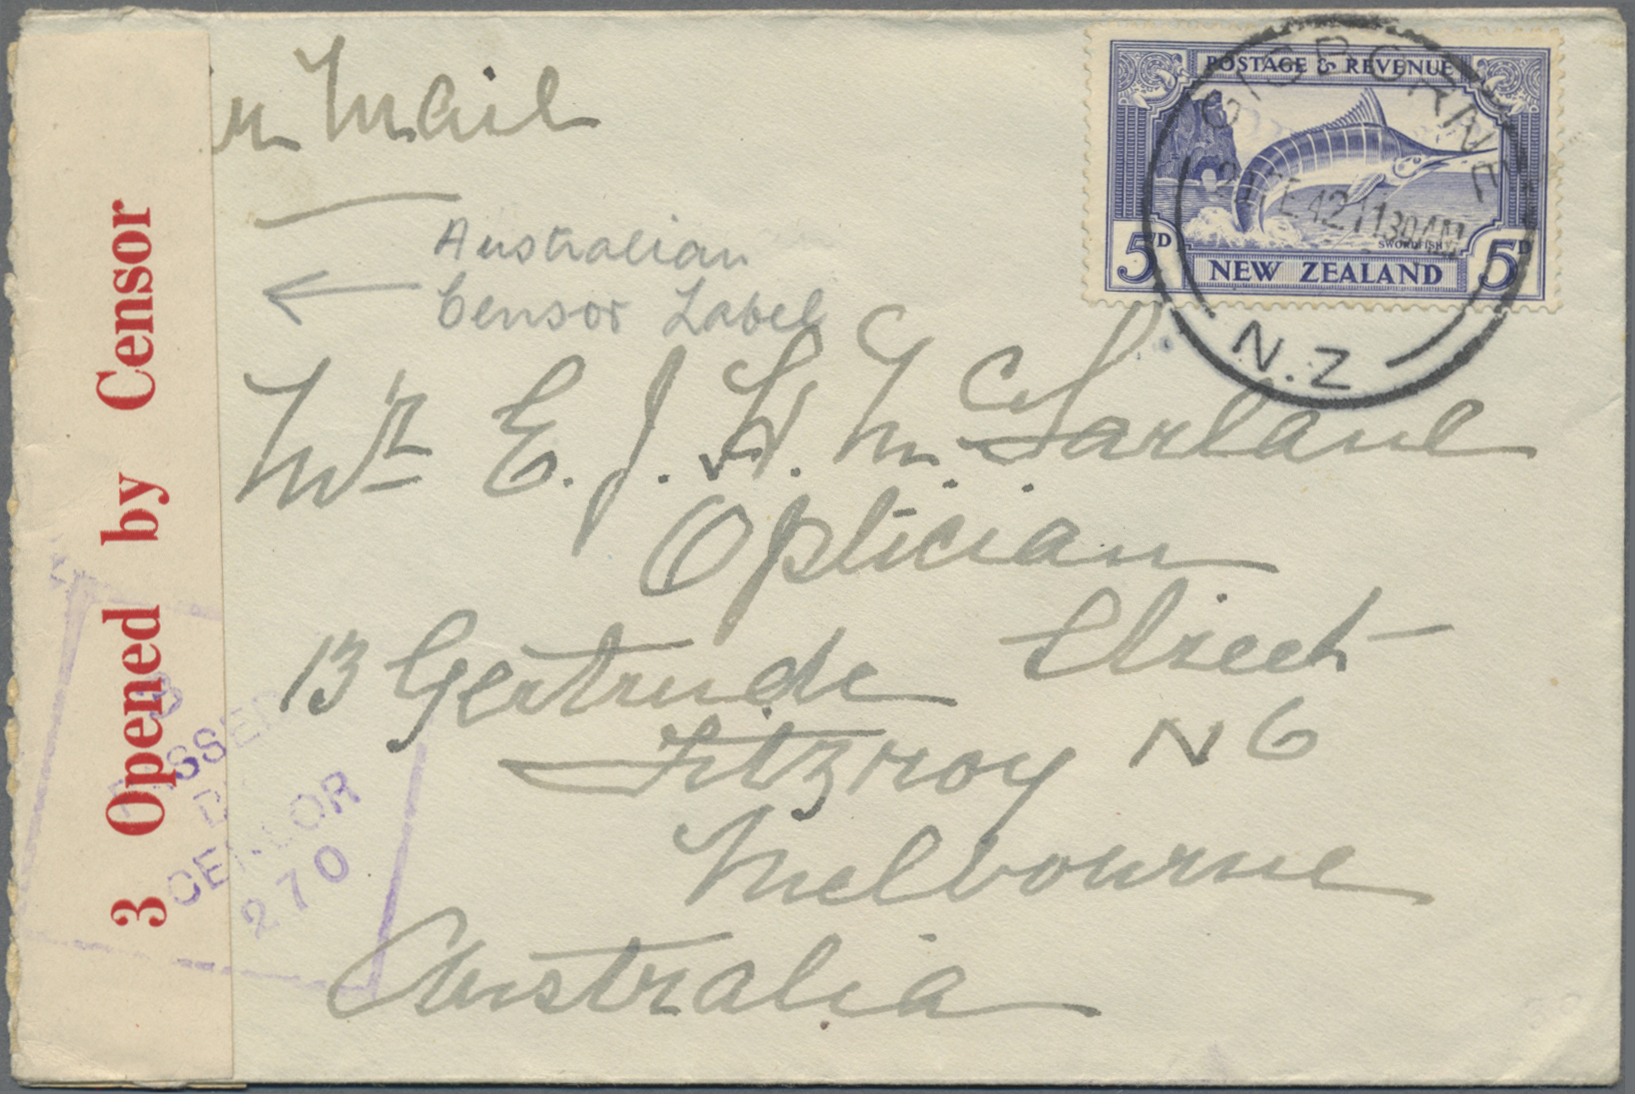 Mail
POSTAGE & REVENUE
GISBORNE
42 1130AM
SWORDFISH
5D NEW ZEALAND 5D
N.Z
Australian
Censor Label
Mr E. J. H. McFarland
Optician
13 Gertrude Street
Fitzroy N6
Melbourne
Australia
3 Opened by Censor
3
PASSED
BY
CENSOR
270